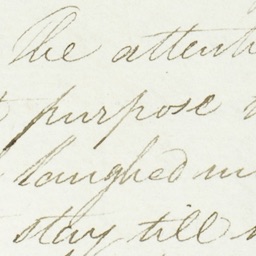 the attent
purpose
laughed
stay till